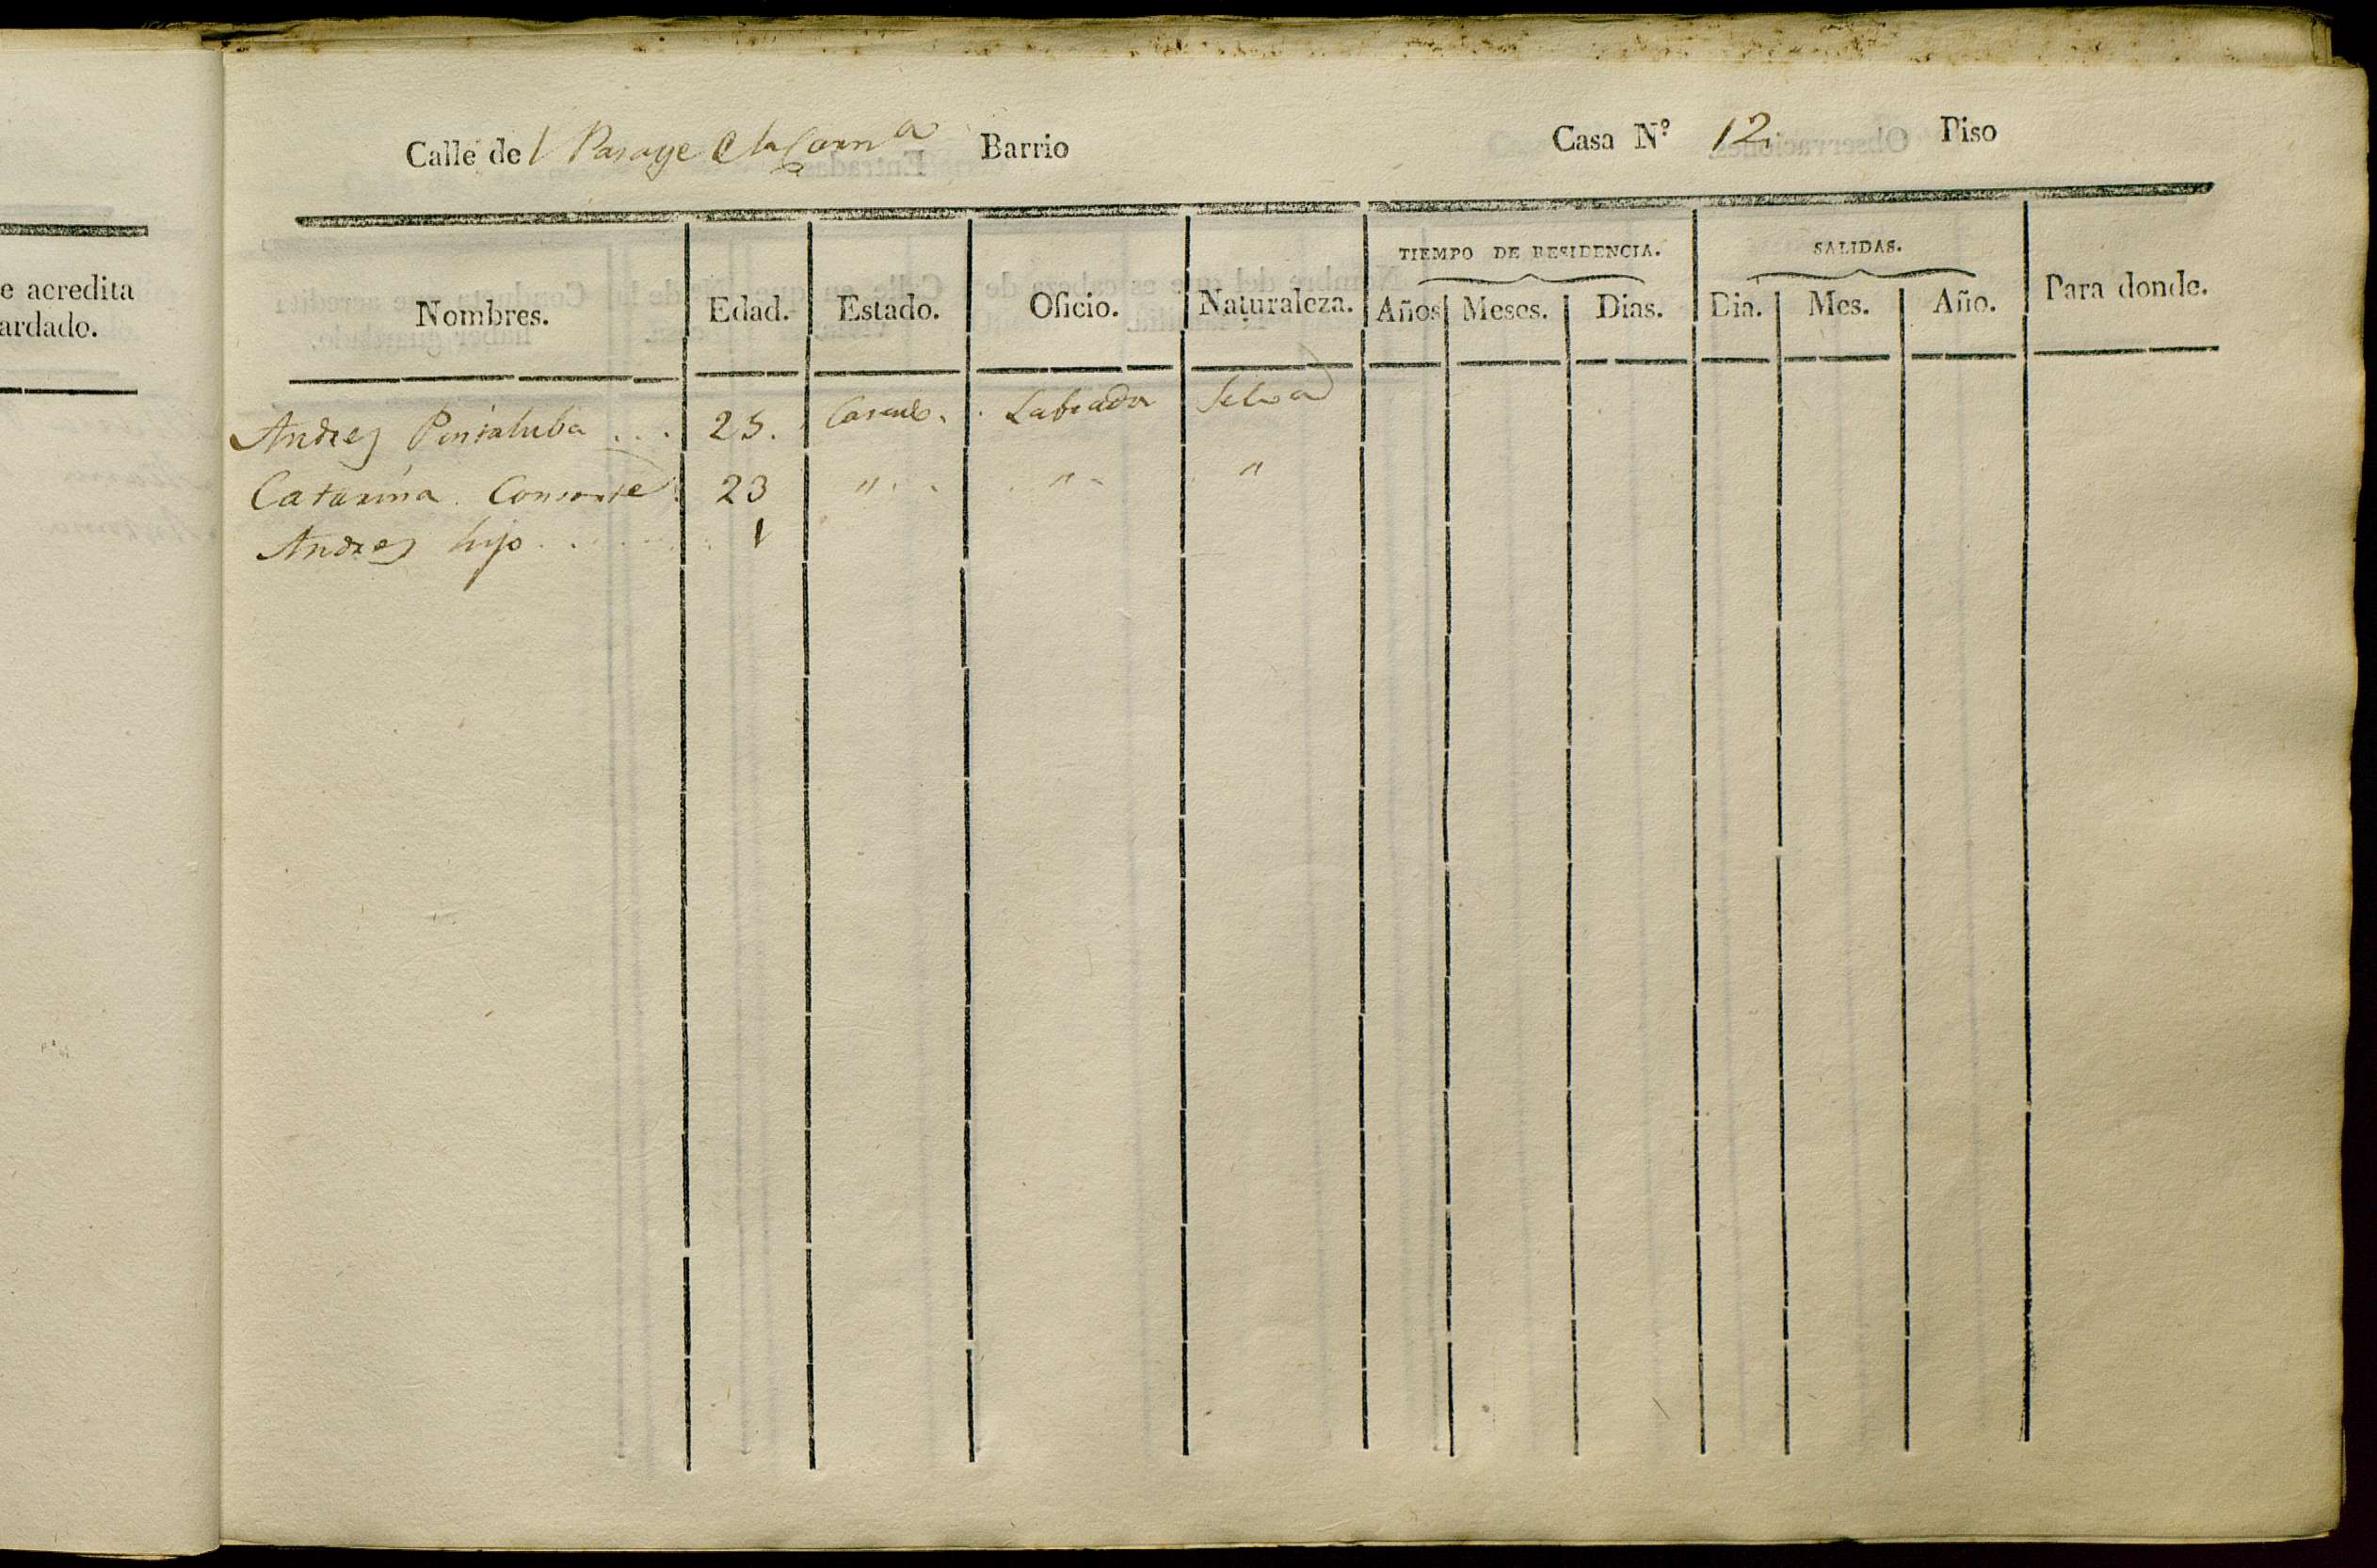 e acredita
ardado.
Calle del Parage Barrio Casa N.º 12, Piso
TIEMPO DE RESIDENCIA. SALIDAS.
Nombres. Edad. Estado. Oficio. Naturaleza. Años Meses. Dias. Dia. Mes. Año. Para donde.
Andres 25. Labrador Selva
Catarina Consorte 23 " " "
Andres hijo 1